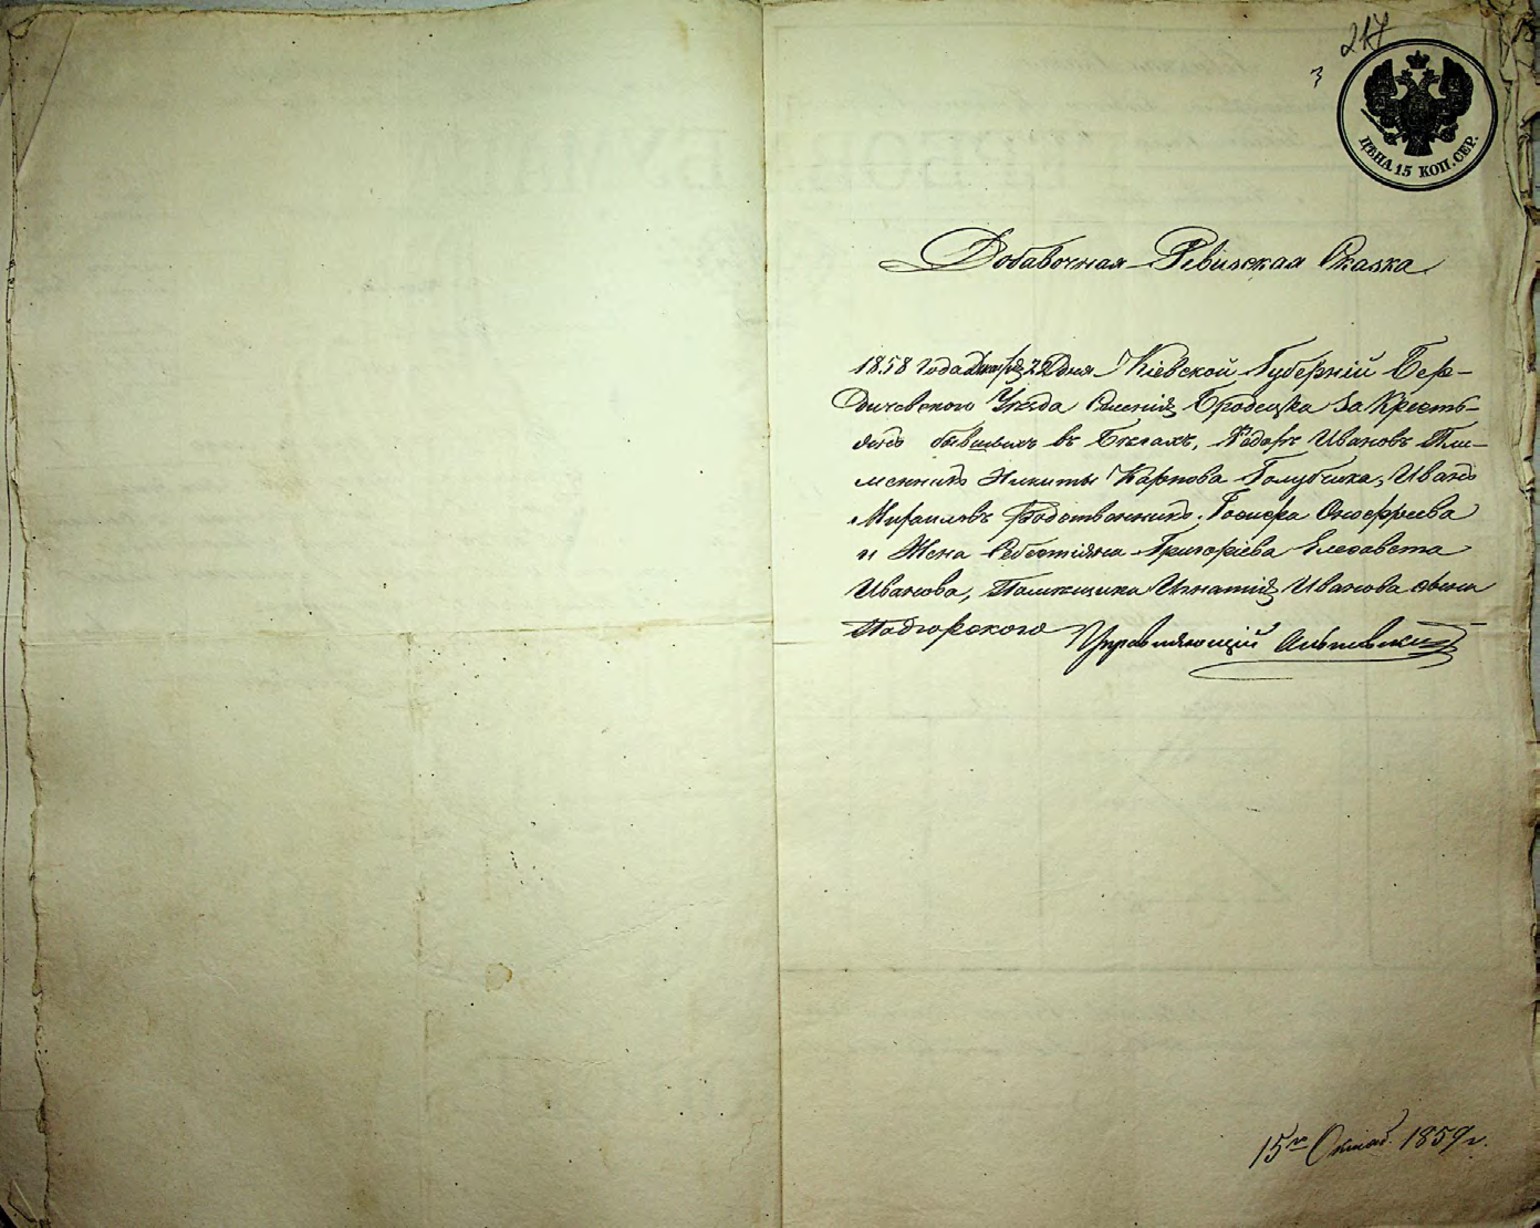 217
3
ЦѢНА 15 КОП. СЕР.
Добавочная Ревизская Сказка
1858 года Декабря 22 дня Кіевской Губерніи Бер-
дичевского Уѣзда Селенія Бродецка За Крестъ-
янъ бывшихъ въ Бѣгахъ, Федоръ Ивановъ Пле-
менникъ Никиты Карпова Голубчика, Иванъ
Михаиловъ Родственникъ Іосифа Онофріева
и Жена Себестіяна Григоріева Елезавета
Иванова, Помѣщика Игнатія Иванова сына
Подгорского Управляющій
15го Октяб. 1859 г.